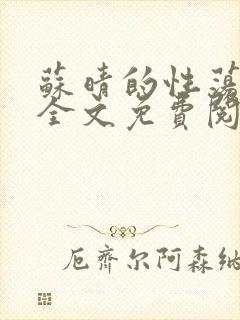 蘇晴的性蕩
全文免費閱
厄齊尔阿森纳